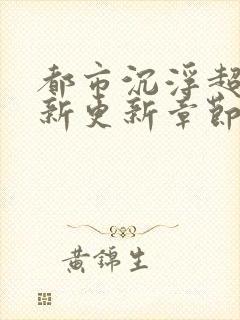 都市沉浮超
新更新章節
黃錦生